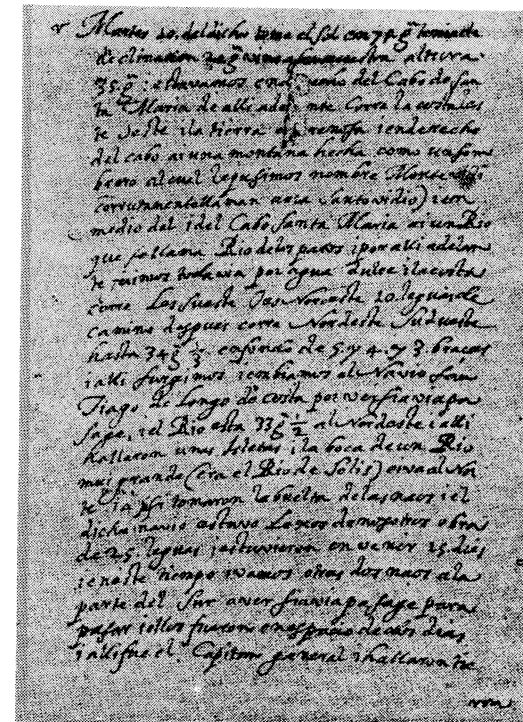 Martes 10. del dicho tome el Sol en 75 g. y tenia de
declinacion 20 g. vino a ser nuestra altura
35 g: estavamos en el derecho del Cabo de San
ta Maria de alli adelante. Corre la costa les
te Oeste i la tierra es arenosa i en derecho
del cabo ai una montaña hecha como un som
brero al cual le pusimos nombre Monte vidi
corrutamente llaman aora Santo vidio) i en
medio del i del Cabo Santa Maria ai un Rio
que se llama Rio delos patos i por alli adelan
te fuimos todavia por agua dulce i la costa
corre Les Sueste Oes Noroeste 10 leguas de
camino despues corre Nordeste Sudueste
hasta 34 g. 1/3 en fondo de 5 y 4. y 3. bracas
i alli surgimos i enbiamos al Navio San
Tiago de longo de costa por ver si avia pa
saje, i el Rio esta 33 g. 1/2 al Nordeste i alli
hallaron unas Isletas i la boca de un Rio
mui grande (era el Rio de Solis) e iva al Nor
te i assi tomaron la buelta de las naos i el
dicho navio estuvo lexos de nosotros obra
de 25. leguas i estuvieron en venir 15 dias
i en este tiempo ivamos otras dos naos a la
parte del Sur a ver si avia passaje para
pasar i ellos fueron en espacio de dos dias
i alli fue el Capitan general i hallaron tie
rra